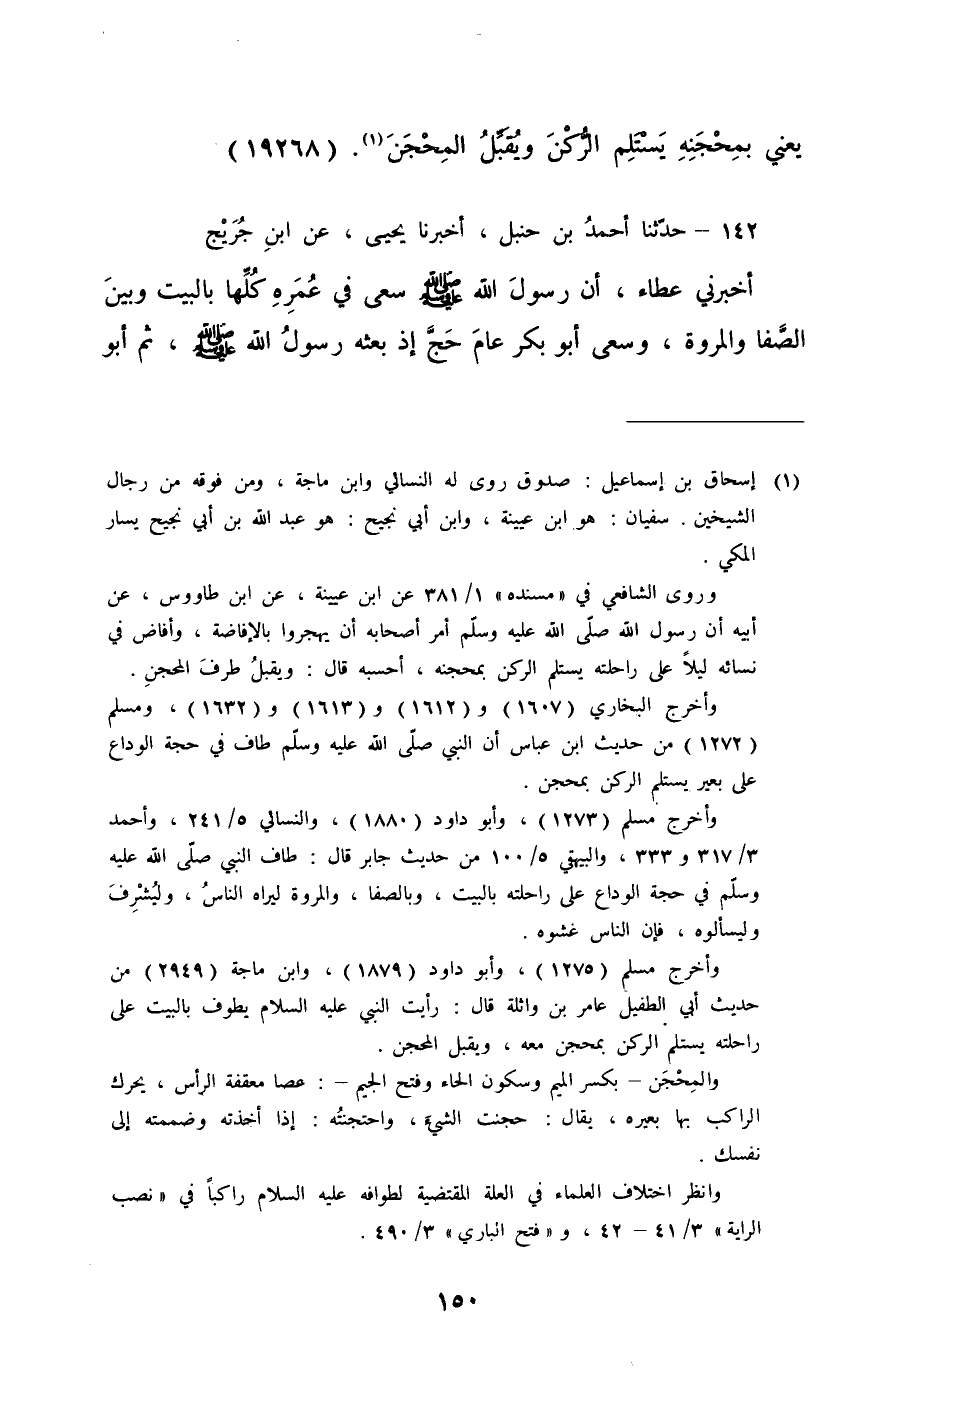 يعني بمِحْجَنِهِ يَسْتَلِم الرُّكْنَ ويُقَبِّلُ المِحْجَنَ(١). (١٩٢٦٨)
١٤٢ – حدّثنا أحمدُ بن حنبل ، أخبرنا يحيى ، عن ابنِ جُرَيْج
أخبرني عطاء ، أن رسولَ الله ﷺ سعى في عُمَرِهِ كُلِّها بالبيت وبينَ
الصَّفا والمروة ، وسعى أبو بكر عامَ حَجَّ إذ بعثه رسولُ الله ﷺ ، ثم أبو
(١) إسحاق بن إسماعيل : صدوق روى له النسائي وابن ماجة ، ومن فوقه من رجال
الشيخين . سفيان : هو ابن عيينة ، وابن أبي نجيح : هو عبد الله بن أبي نجيح يسار
المكي .
وروى الشافعي في «مسنده» ٣٨١/١ عن ابن عيينة ، عن ابن طاووس ، عن
أبيه أن رسول الله صلّى الله عليه وسلّم أمر أصحابه أن يهجروا بالإفاضة ، وأفاض في
نسائه ليلاً على راحلته يستلم الركن بمحجنه ، أحسبه قال : ويقبلُ طرفَ المحجنِ .
وأخرج البخاري (١٦٠٧) و (١٦١٢) و (١٦١٣) و (١٦٣٢) ، ومسلم
(١٢٧٢) من حديث ابن عباس أن النبي صلّى الله عليه وسلّم طاف في حجة الوداع
على بعير يستلم الركن بمحجن .
وأخرج مسلم (١٢٧٣) ، وأبو داود (١٨٨٠) ، والنسائي ٢٤١/٥ ، وأحمد
٣١٧/٣ و ٣٣٣ ، والبيهقي ١٠٠/٥ من حديث جابر قال : طاف النبي صلّى الله عليه
وسلّم في حجة الوداع على راحلته بالبيت ، وبالصفا ، والمروة ليراه الناسُ ، وليُشْرِفَ
وليسألوه ، فإن الناس غشوه .
وأخرج مسلم (١٢٧٥) ، وأبو داود (١٨٧٩) ، وابن ماجة (٢٩٤٩) من
حديث أبي الطفيل عامر بن واثلة قال : رأيت النبي عليه السلام يطوف بالبيت على
راحلته يستلم الركن بمحجن معه ، ويقبل المحجن .
والمِحْجَن – بكسر الميم وسكون الحاء وفتح الجيم – : عصا معقفة الرأس ، يحرك
الراكب بها بعيره ، يقال : حجنت الشيءَ ، واحتجنتُه : إذا أخذته وضممته إلى
نفسك .
وانظر اختلاف العلماء في العلة المقتضية لطوافه عليه السلام راكباً في « نصب
الراية» ٤١/٣ – ٤٢ ، و « فتح الباري» ٤٩٠/٣ .
١٥٠